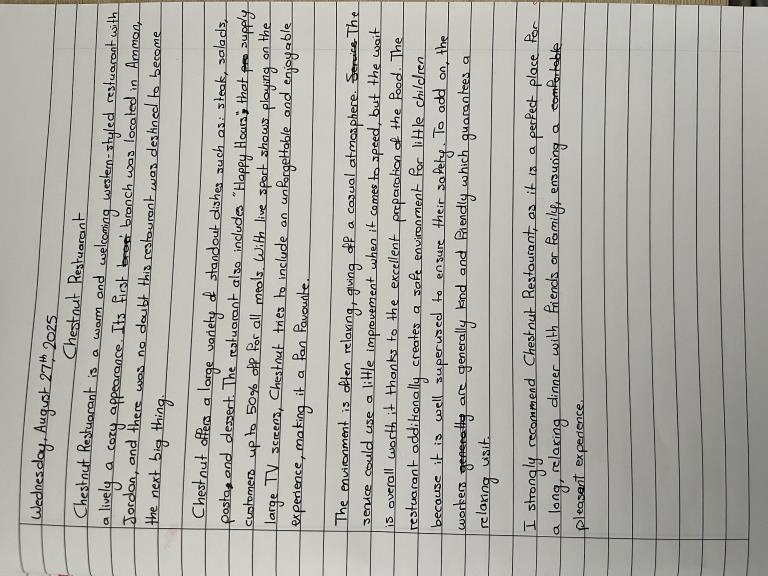 Wednesday, August 27th, 2025
Chestnut Restuarant
Chestnut Restuarant is a warm and welcoming western-styled restuarant with
a lively a cozy appearance. Its first branch was located in Amman,
Jordan, and there was no doubt this restaurant was destined to become
the next big thing.
Chestnut offers a large variety of standout dishes such as: steak, salads,
pasta, and dessert. The restuarant also includes "Happy Hours", that supply
customers up to 50% off for all meals. With live sport shows playing on the
large TV screens, Chestnut tries to include an unforgettable and enjoyable
experience, making it a fan favourite.
The environment is often relaxing, giving off a casual atmosphere. The
service could use a little improvement when it comes to speed, but the wait
is overall worth it thanks to the excellent preparation of the food. The
restuarant additionally creates a safe environment for little children
because it is well superused to ensure their safety. To add on, the
workers are generally kind and friendly which guarantees a
relaxing visit.
I strongly recommend Chestnut Restaurant, as it is a perfect place for
a long, relaxing dinner with friends or family, ensuring a
pleasent experience.